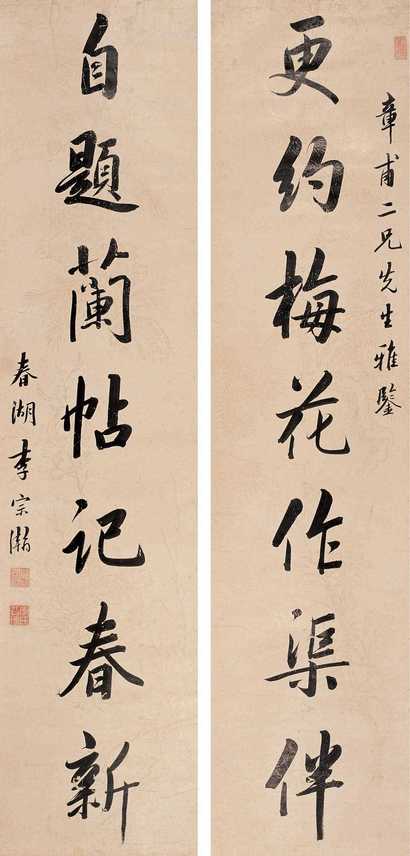 章甫二兄先生雅鑒
更約梅花作渠伴
自題蘭帖記春新
春湖李宗瀚